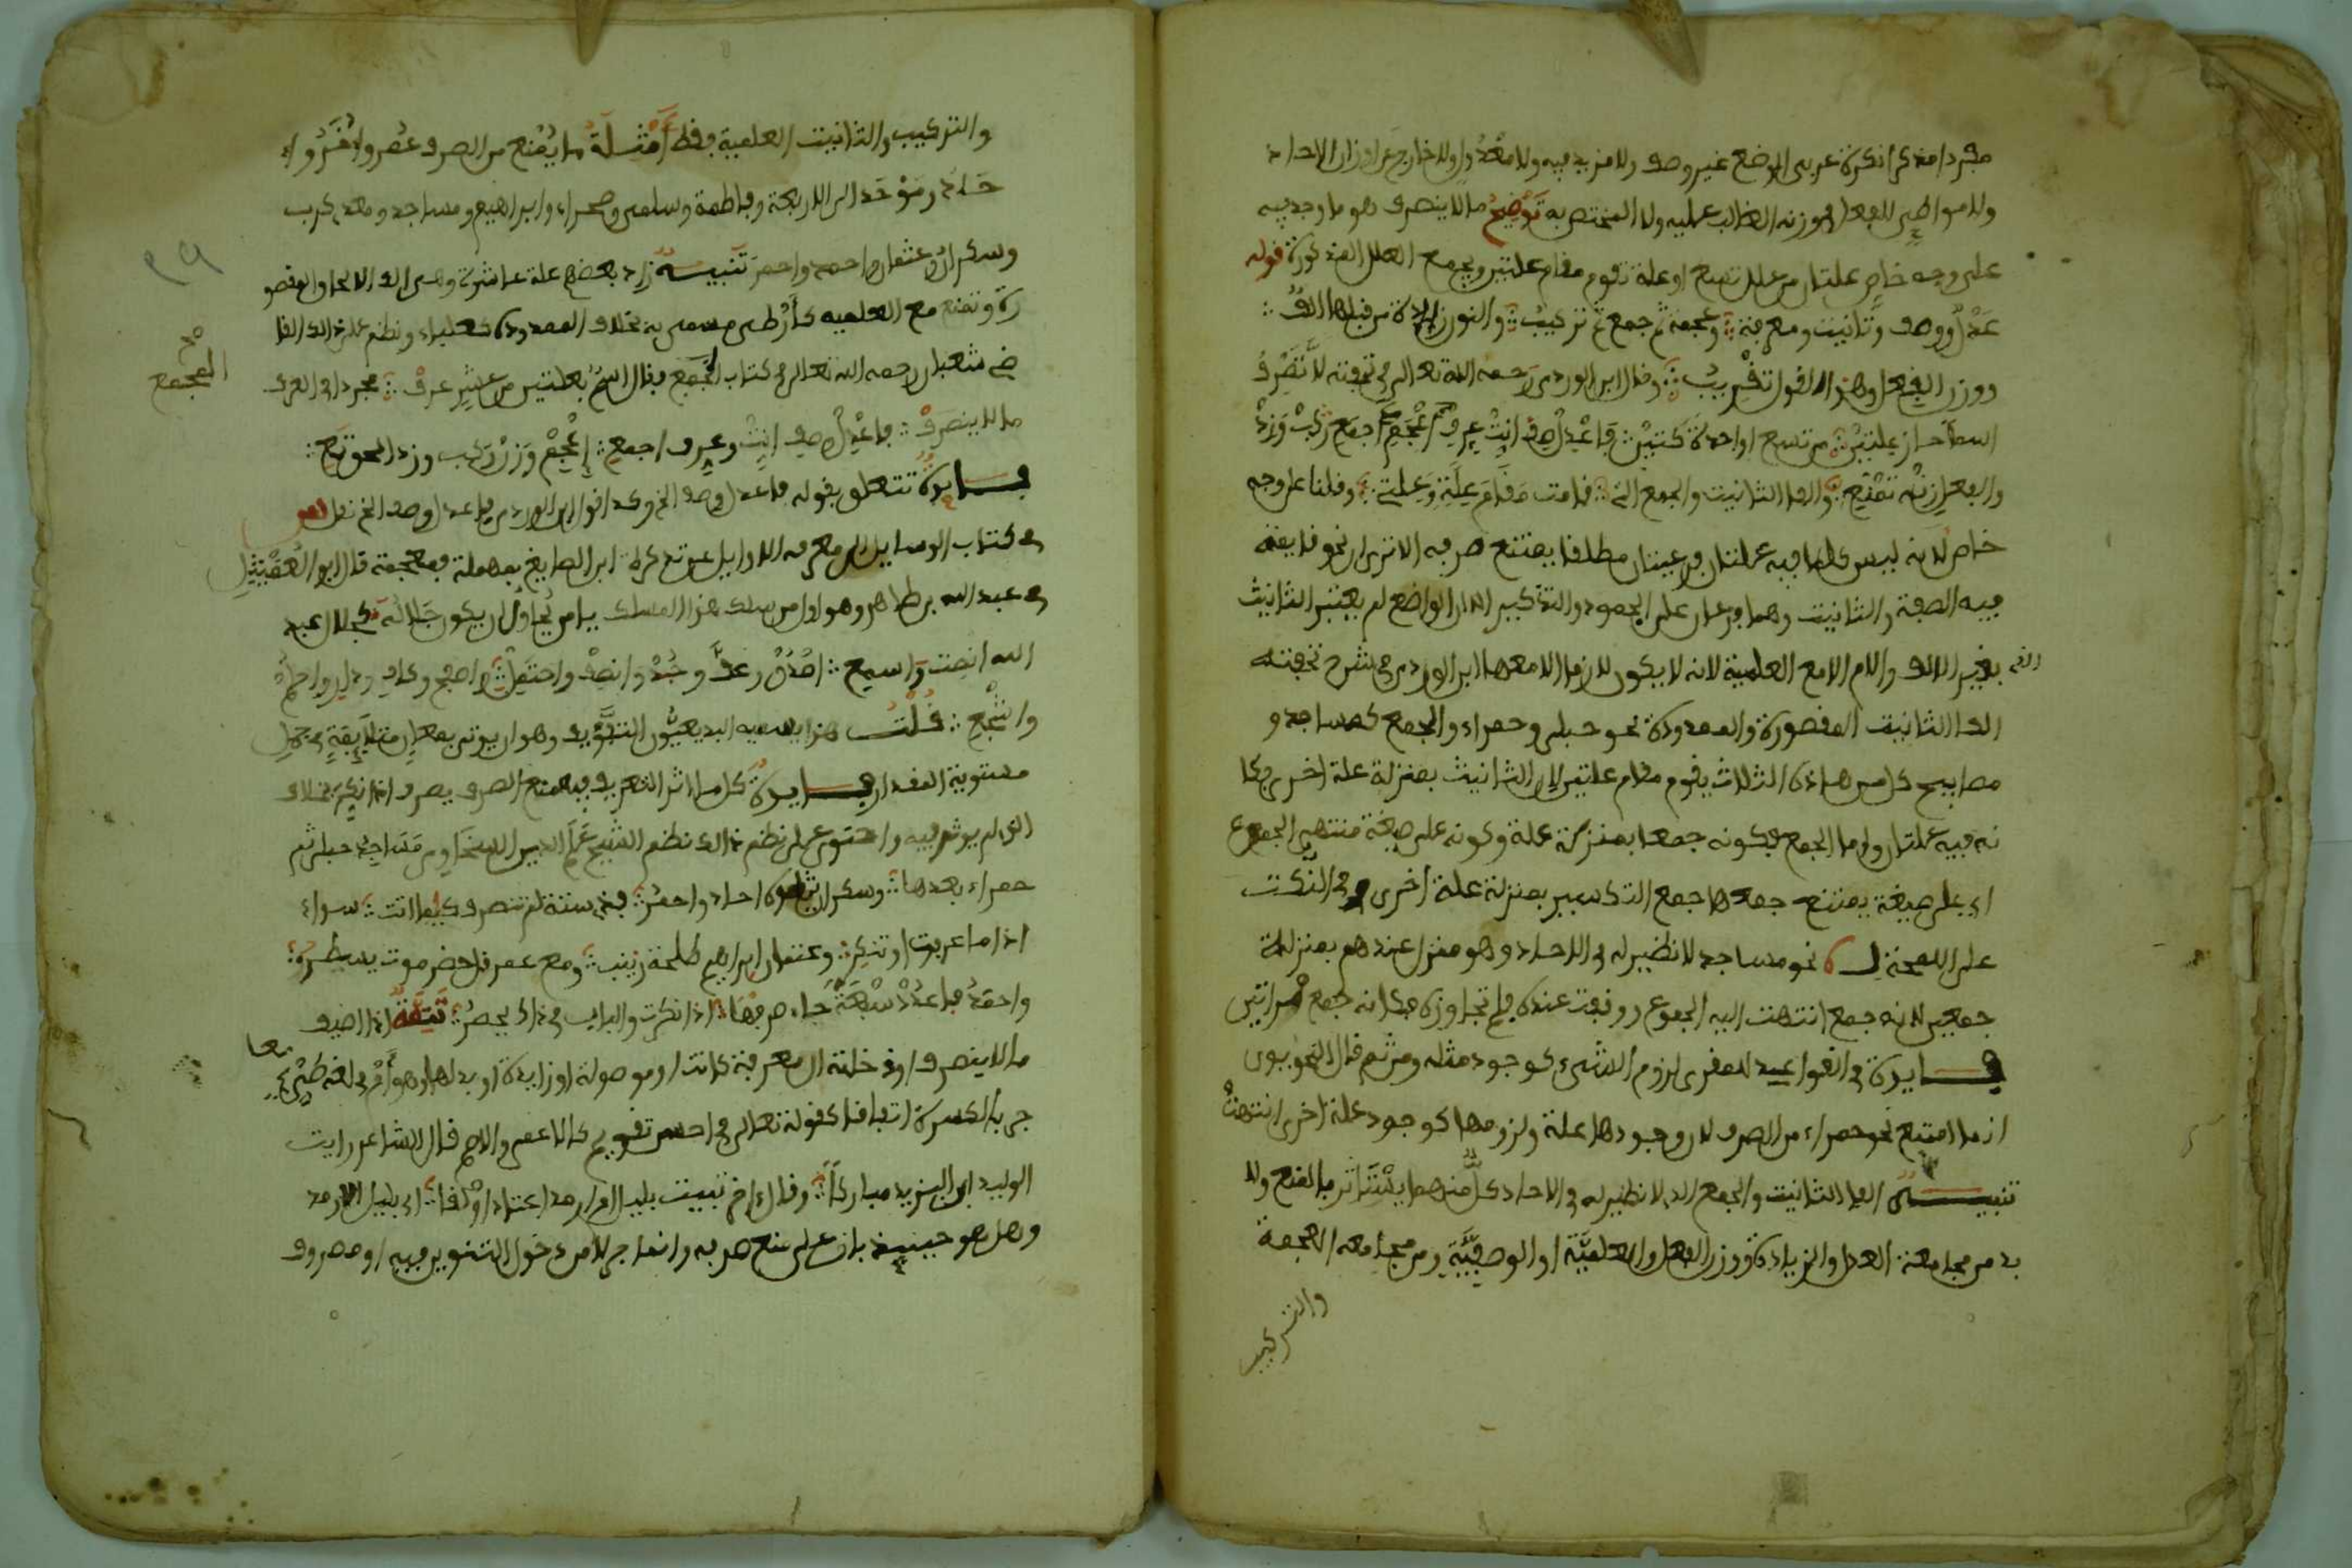 مفردا مذكرا نكرة عربي الوضع غير وصف ولا مزيد فيه ولا معدول ولا خارج عن اوزان الاحاد
ولا مواطئ للفعل في وزنه الغالب عليه ولا المختص به توضيح ما لا ينصرف هو ما وجد فيه
على وجه خاص علتان من علل تسع او علة تقوم مقام علتين ويجمع العلل المذكورة قوله
عدل ووصف وتانيث ومعرفة وعجمة ثم جمع ثم تركيب والنون زايدة من قبلها الف
ووزن الفعل وهذا القول تقريب وقال ابن الوردي رحمه الله تعالى في تحفته لا تصرف
اسما حاز علتين من تسع او واحدة كتين فاعدل صف انث عرف اعجم اجمع ركب وزد
والفعل زنه تمتنع والف التانيث والجمع الذي قامت مقام علة وعلة وقلنا على وجه
خاص لانه ليس كلما فيه علتان فرعيتان مطلقا يمتنع صرفه الا ترى ان نحو قايمة
فيه الصفة والتانيث وهما فرعان على الجمود والتذكير الا ان الواضع لم يعتبر التانيث
الذي بغير الالف والام الا مع العلمية لانه لا يكون لازما الا معها ابن الوردي في شرح تحفته
الف التانيث المقصورة والممدودة نحو حبلى وحمراء والجمع كمساجد و
مصابيح كل من هاذه الثلاث يقوم مقام علتين لان التانيث بمنزلة علة اخرى فكا
نه فيه علتان واما الجمع فكونه جمعا بمنزلة علة وكونه على صيغة منتهى الجموع
اي على صيغة يمتنع جمعها جمع التكسير بمنزلة علة اخرى وفي النكت
على اللمحة نحو مساجد لا نظير له في الاحاد وهو منزل عندهم بمنزلة
جمعين لانه جمع انتهت اليه الجموع ووقفت عنده فلم تجاوزه فكانه جمع مرتين
فايدة في القواعد للمقري لزوم الشيء كوجود مثله ومن ثم قال النحويون
انما امتنع نحو حمراء من الصرف لان وجودها علة ولزومها كوجود علة اخرى انتهت
تنبيه الف التانيث والجمع الذي لا نظير له في الاحاد كل منهما يستاثر بالمنع ولا
بد من مجامعة العدل والزيادة ووزن الفعل والعلمية او الوصفية ومن مجامعة العجمة
والتركيب
والتركيب والتانيث العلمية فقط امثلة ما يمنع من الصرف عمر واخر و
حاد وموحد الى الاربعة وفاطمة وسلمى وصحراء وابراهيم ومساجد ومعدي كرب
وسكران وعثمان واحمد واحمر تنبيه زاد بعضهم علة عاشرة وهي الف الالحاق المقصو
رة وتمنع مع العلمية كارطى مسمى به بخلاف الممدودة كعلباء ونظم على ذالك القا
ضي شعبان رحمه الله تعالى في كتاب المجمع فقال اسم بعلتين من عشر عرف مجردا في العرف
المجمع
ما لا ينصرف فاعدل صف انث وعرف اجمع اعجم وزن ركب وزد الحق تع
فايدة تتعلق بقوله فاعدل صف الخ وكذا قول ابن الوردي فاعدل وصف الخ نقل
في كتاب الوسايل الى معرفة الاوايل عن تذكرة ابن الصايغ بمهملة فمعجمة قال ابو العميثل
في عبد الله بن طاهر وهو اول من سلك هذا المسلك يا من يحاول ان يكون جلاله كجلال عبد
الله انصت واسمع اصدق وعف وجد وانصف واحتمل واصفح وكاف ودار واحلم
واشجع قلت هذا يسميه البديعيون التفويف وهو ان يوتى بمعان متلايمة في جمل
مستوية المقدار فايدة كل ما اثر التعريف فيه منع الصرف يصرف اذا نكر بخلاف
الذي لم يوثر فيه واحتوى على نظم ذالك نظم الشيخ علم الدين السخاوي مساجد حبلى ثم
حمراء بعدها وسكران يتلوه احاد واحمر فذي ستة لم تنصرف كيفما اتت سواء
اذا ما عرفت او تنكر وعثمان ابراهيم طلحة زينب ومع عمر قل حضرموت يسطر
واحمد فاعدد سبعة جاء صرفها اذا نكرت والباب في ذاك يحصر تتمة اذا اضيف
ما لا ينصرف او دخلته ال معرفة كانت او موصولة او زايدة او بدلها وهو ام في لغة طيء
جر بالكسرة اتفاقا كقوله تعالى في احسن تقويم كالاعمى والاصم قال الشاعر رايت
الوليد ابن اليزيد مباركا وقال اخر تبيت بليل ام ارمد اعتاد اولقا اي بليل الارمد
وهل هو حينيذ باق على منع صرفه وانما جر للامن من دخول التنوين فيه او مصروف